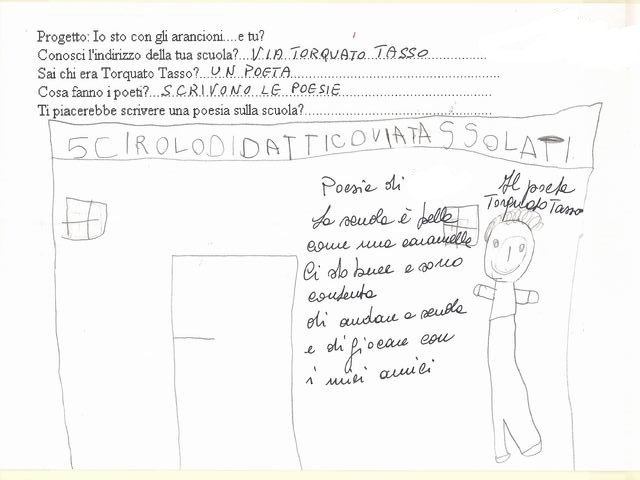 Progetto: Io sto con gli arancioni....e tu?
Conosci l'indirizzo della tua scuola?...VIA TORQUATO TASSO
Sai chi era Torquato Tasso?...UN POETA
Cosa fanno i poeti?...SCRIVONO LE POESIE
Ti piacerebbe scrivere una poesia sulla scuola?
5CIROLODIDATTICOVIATASSOLATI
Il poeta
Torquato Tasso
Poesia di
La scuola è bella
come una caramella
Ci sto bene e sono
contenta
di andare a scuola
e di giocare con
i miei amici